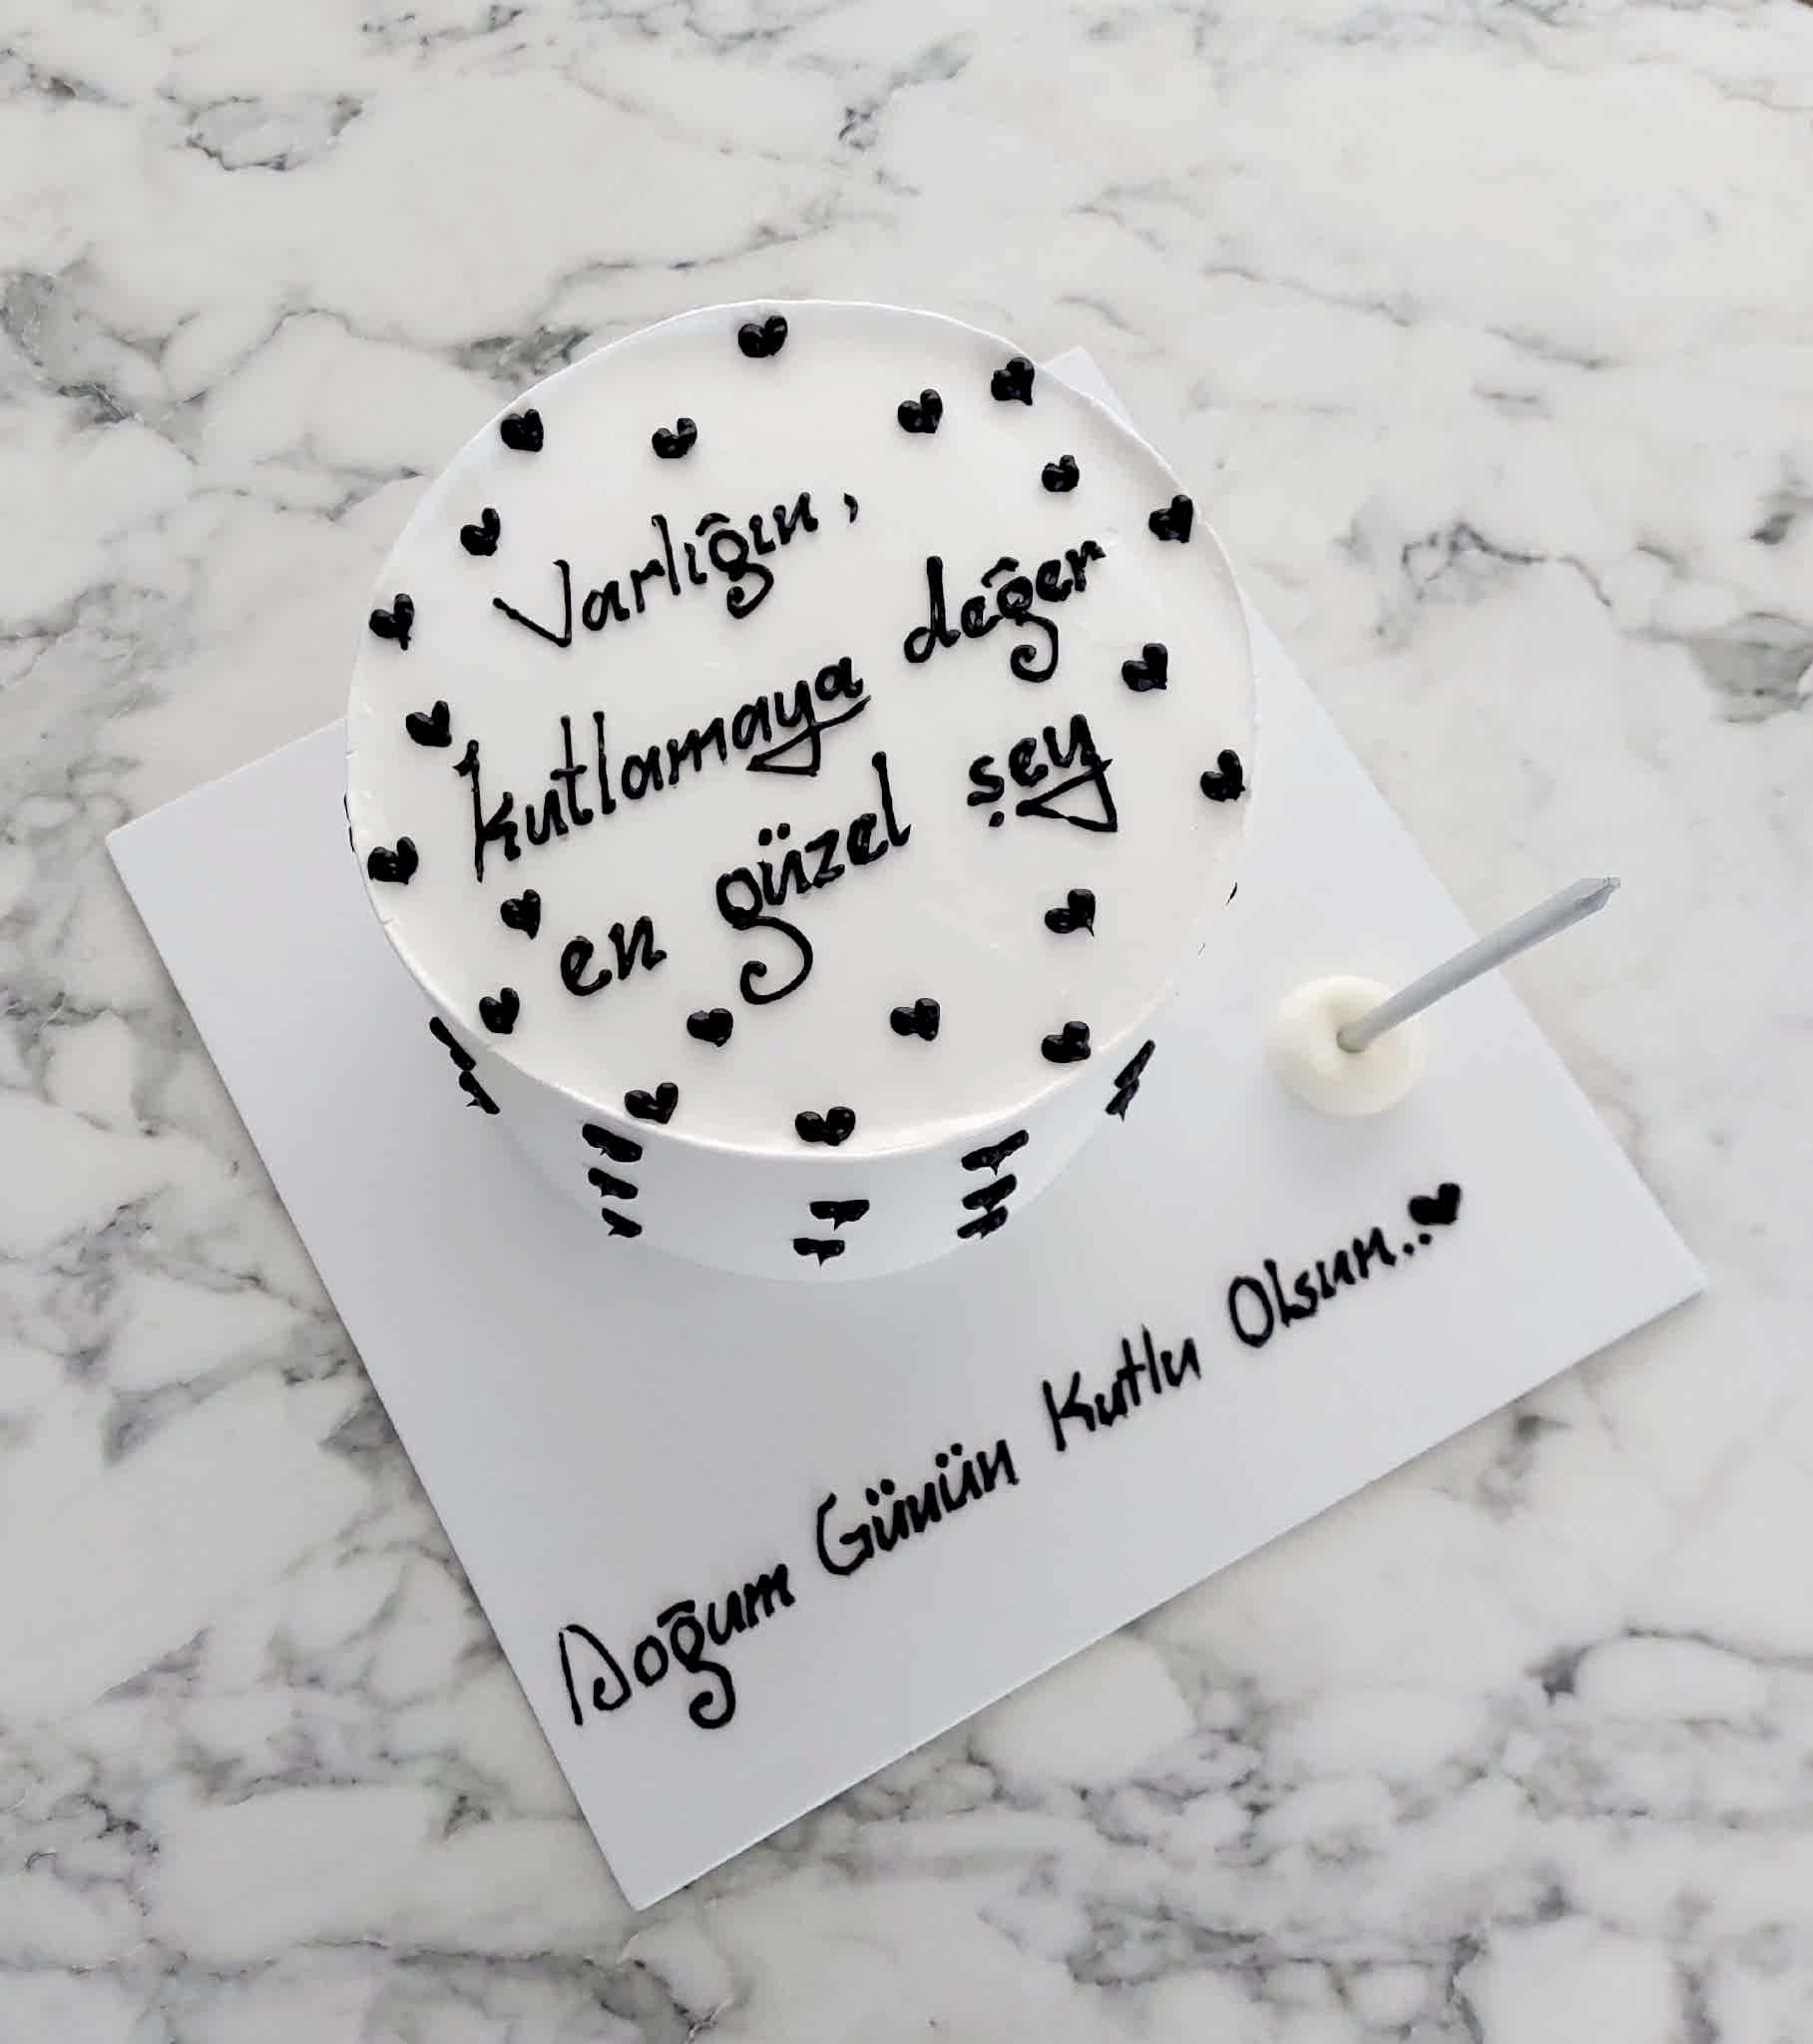 Varlığın,
kutlamaya değer
en güzel şey
Doğum Günün Kutlu Olsun..♥